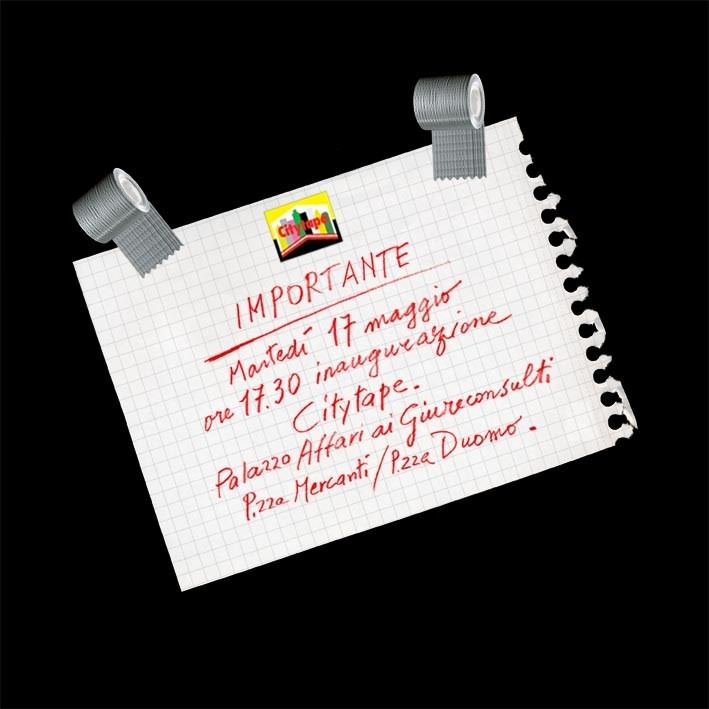 Citytape
IMPORTANTE
Martedí 17 maggio
ore 17.30 inaugurazione
Citytape.
Palazzo Affari ai Giureconsulti
P.zza Mercanti/P.zza Duomo.